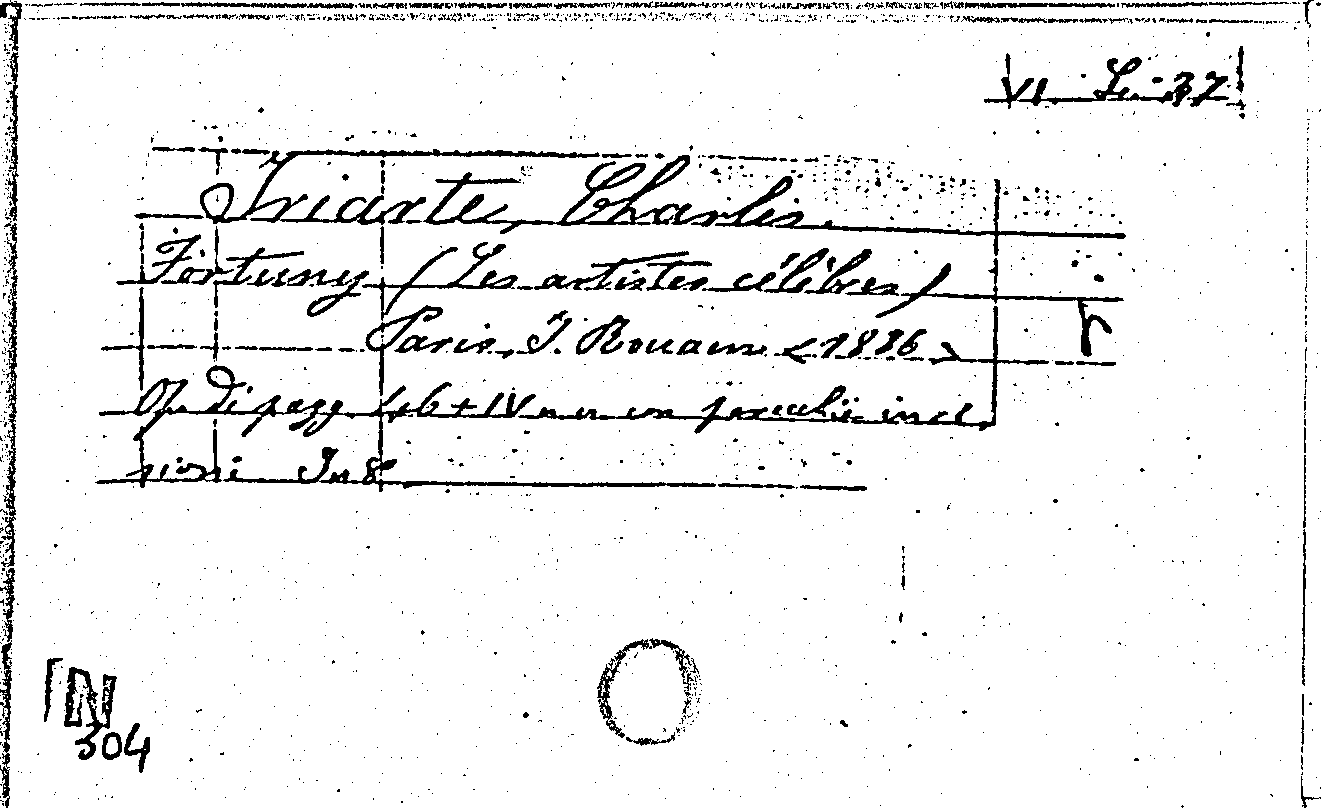 VI. Se. 37
Iriarte, Charles.
Fortuny (Les artistes célèbres)
Paris, J. Rouam <1886>
Op. di pagg. 46 + IV n. n. con parecchie inci
sioni In 8°
r
N
304